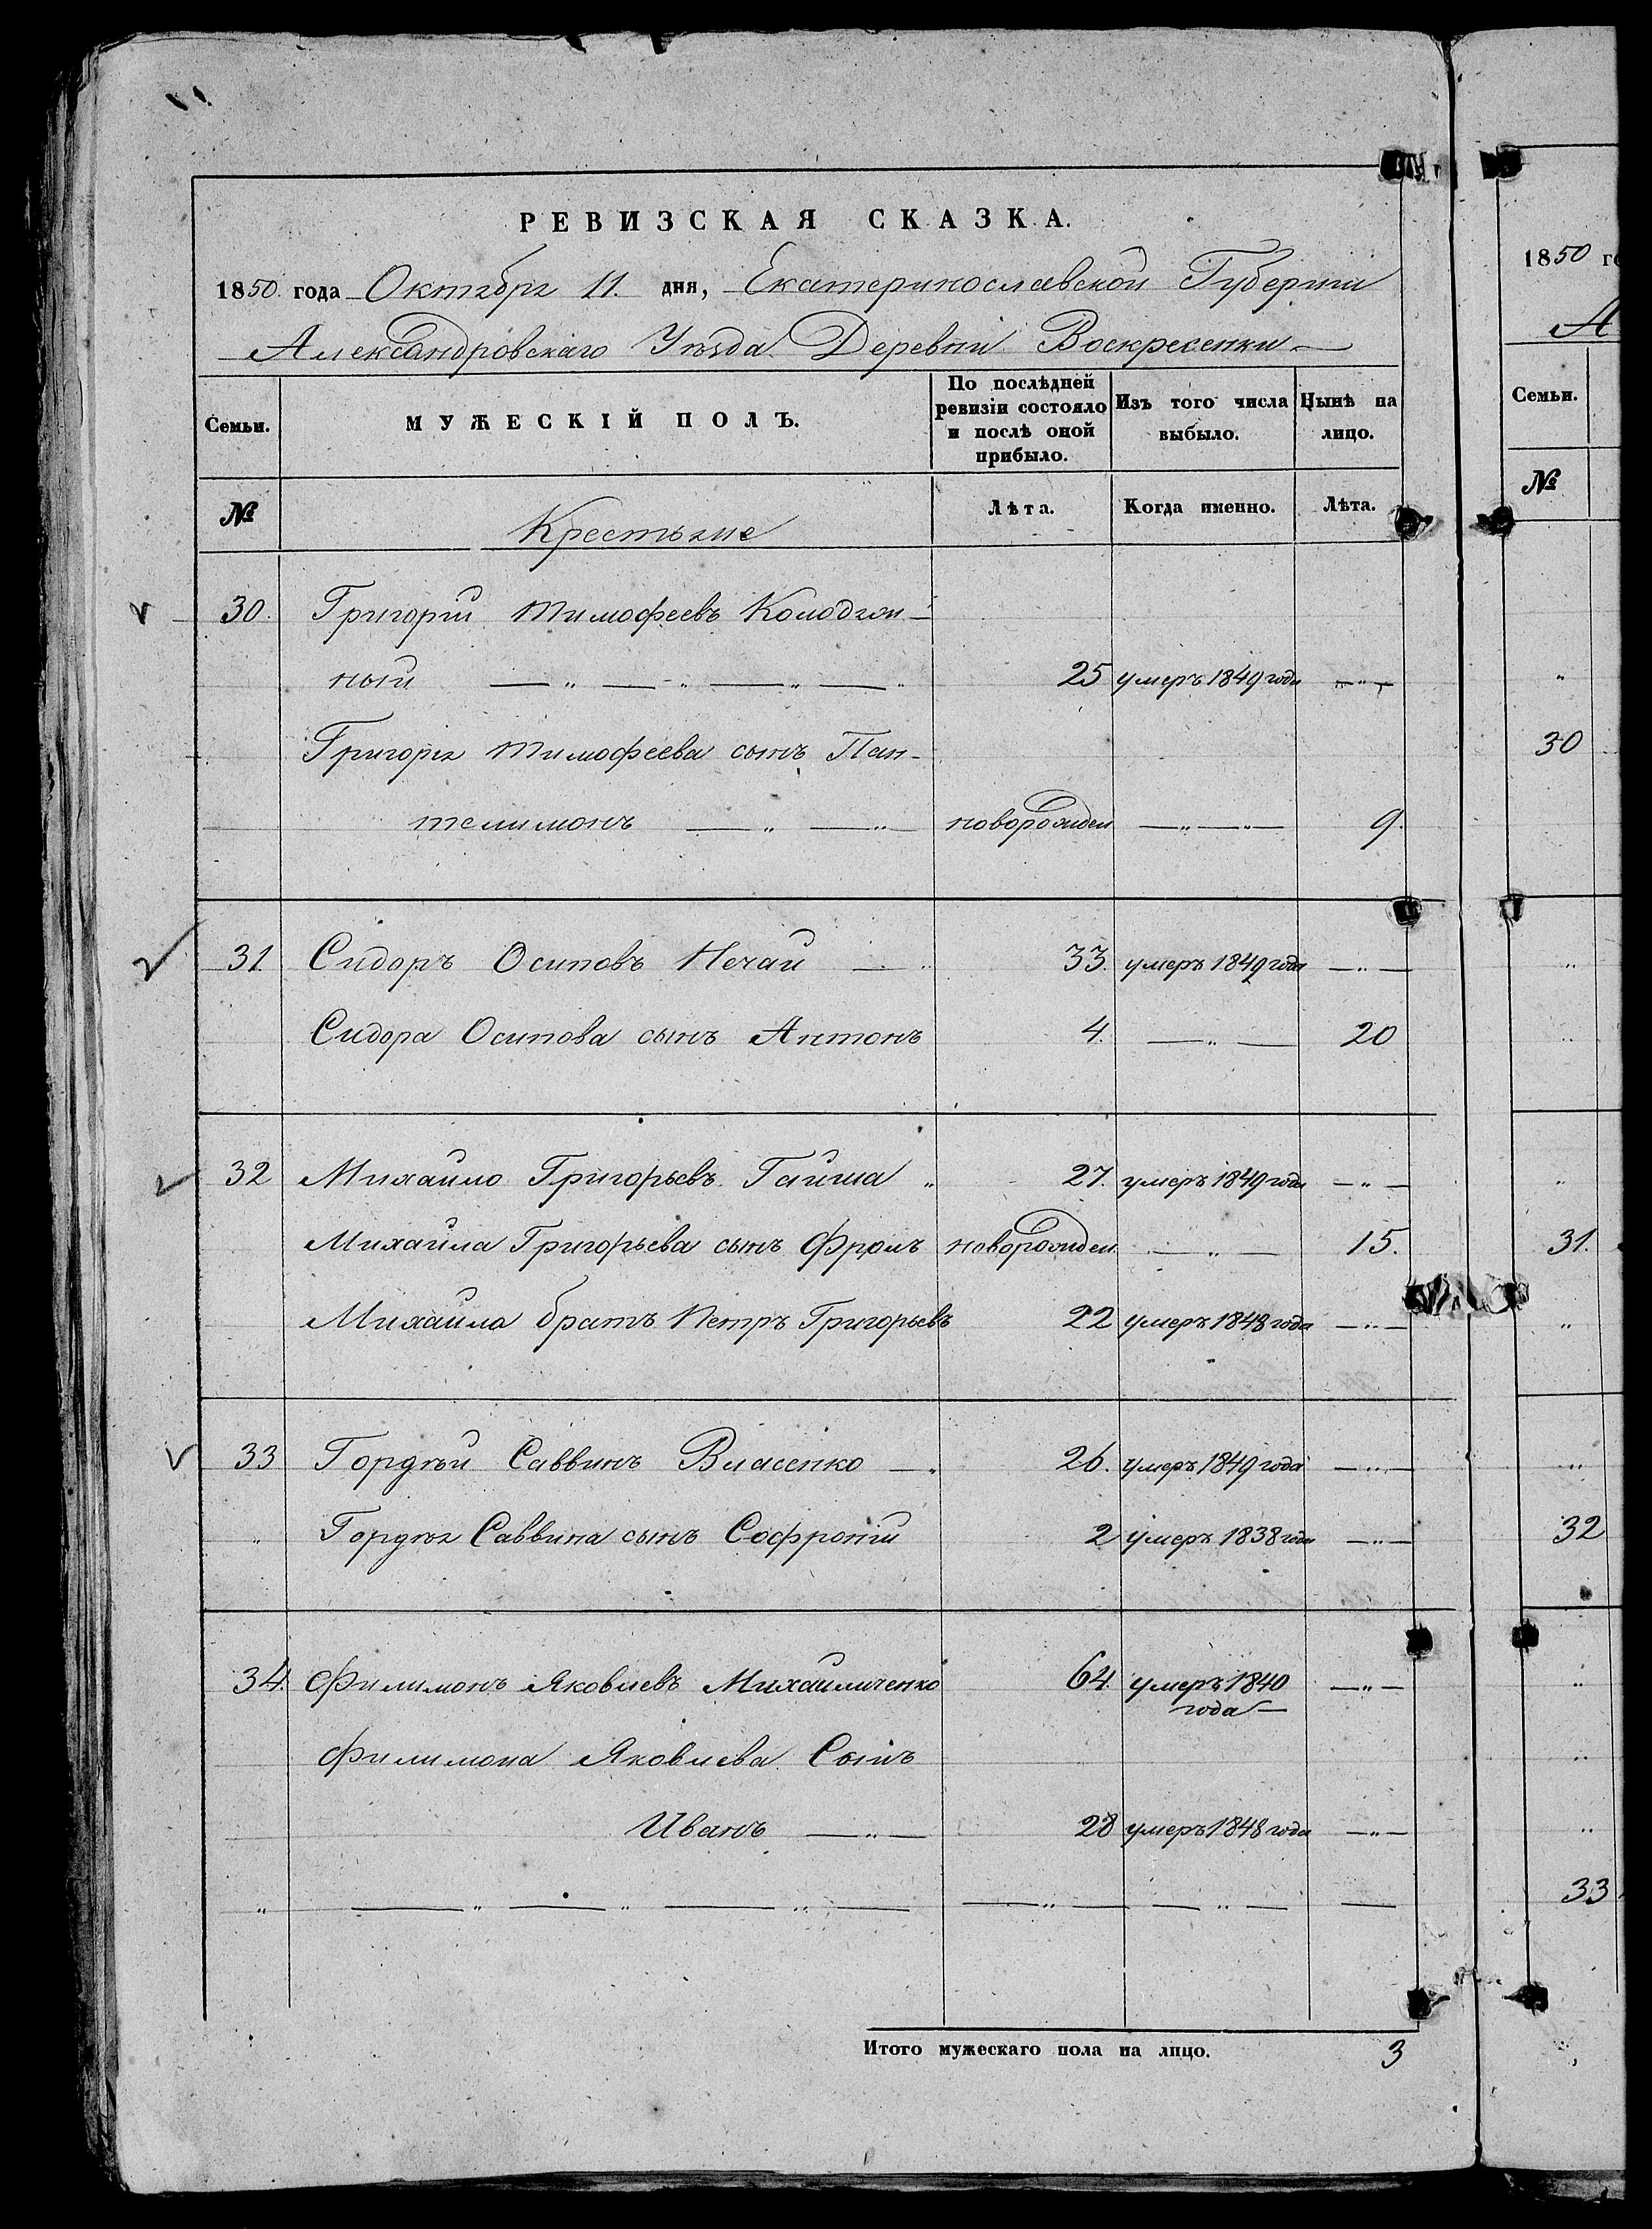 РЕВИЗСКАЯ СКАЗКА.
1850 года Октября 11. дня, Екатеринославской Губернии
Александровскаго Уѣзда Деревни Воскресенки
Семьи. МУЖЕСКІЙ ПОЛЪ. По послѣдней ревизіи состояло и послѣ оной прибыло. Изъ того числа выбыло. Нынѣ на лицо.
№ Крестьяне Лѣта. Когда именно. Лѣта.
30. Григорій Тимофеевъ Колодяж-
ный 25 умеръ 1849 года
Григорія Тимофеева сынъ Пан-
телимонъ новорожден 9.
31. Сидоръ Осиповъ Нечай 33. умеръ 1849 года
Сидора Осипова сынъ Антонъ 4. 20
32 Михайло Григорьевъ 27. умеръ 1849 года
Михайла Григорьева сынъ Фролъ новорожден. 15.
Михайла братъ Петръ Григорьевъ 22 умеръ 1848 года
33 Гордѣй Саввинъ Власенко 26. умеръ 1849 года
Гордѣя Саввина сынъ Софроній 2 умеръ 1838 года
34. Филимонъ Яковлевъ Михайличенко 64. умеръ 1840
года
Филимона Яковлева Сынъ
Иванъ 28 умеръ 1848 года
Итого мужескаго пола на лицо. 3
1850 го
А
Семьи.
№
30
31.
32
33